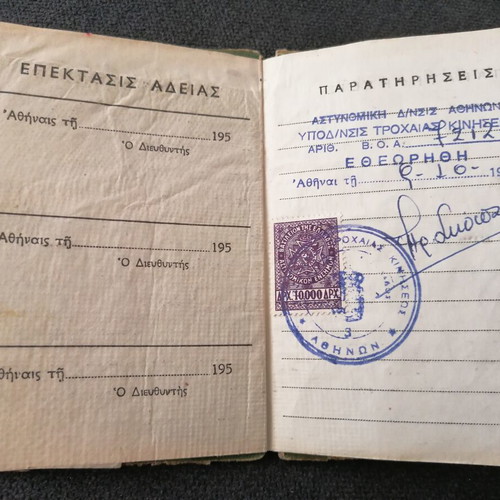 ΕΠΕΚΤΑΣΙΣ ΑΔΕΙΑΣ
Ἀθήναις τῇ 195
Ὁ Διευθυντής
Ἀθήναις τῇ 195
Ὁ Διευθυντής
θήναις τῇ 195
Ὁ Διευθυντής
ΠΑΡΑΤΗΡΗΣΕΙΣ
ΑΣΤΥΝΟΜΙΚΗ Δ/ΝΣΙΣ ΑΘΗΝΩΝ
ΥΠΟΔ/ΝΣΙΣ ΤΡΟΧΑΙΑΣ ΚΙΝΗΣΕ
ΑΡΙΘ. Β.Ο.Α. 7212
ΕΘΕΩΡΗΘΗ
Ἀθῆναι τῇ 6-10-1
ΤΡΟΧΑΙΑΣ ΚΙΝΗΣΕΩΣ
ΑΘΗΝΩΝ
ΔΡΧ 10.000 ΔΡΧ